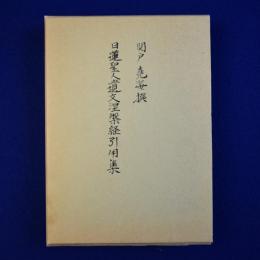 関戸堯海撰
日蓮聖人遺文涅槃経引用集